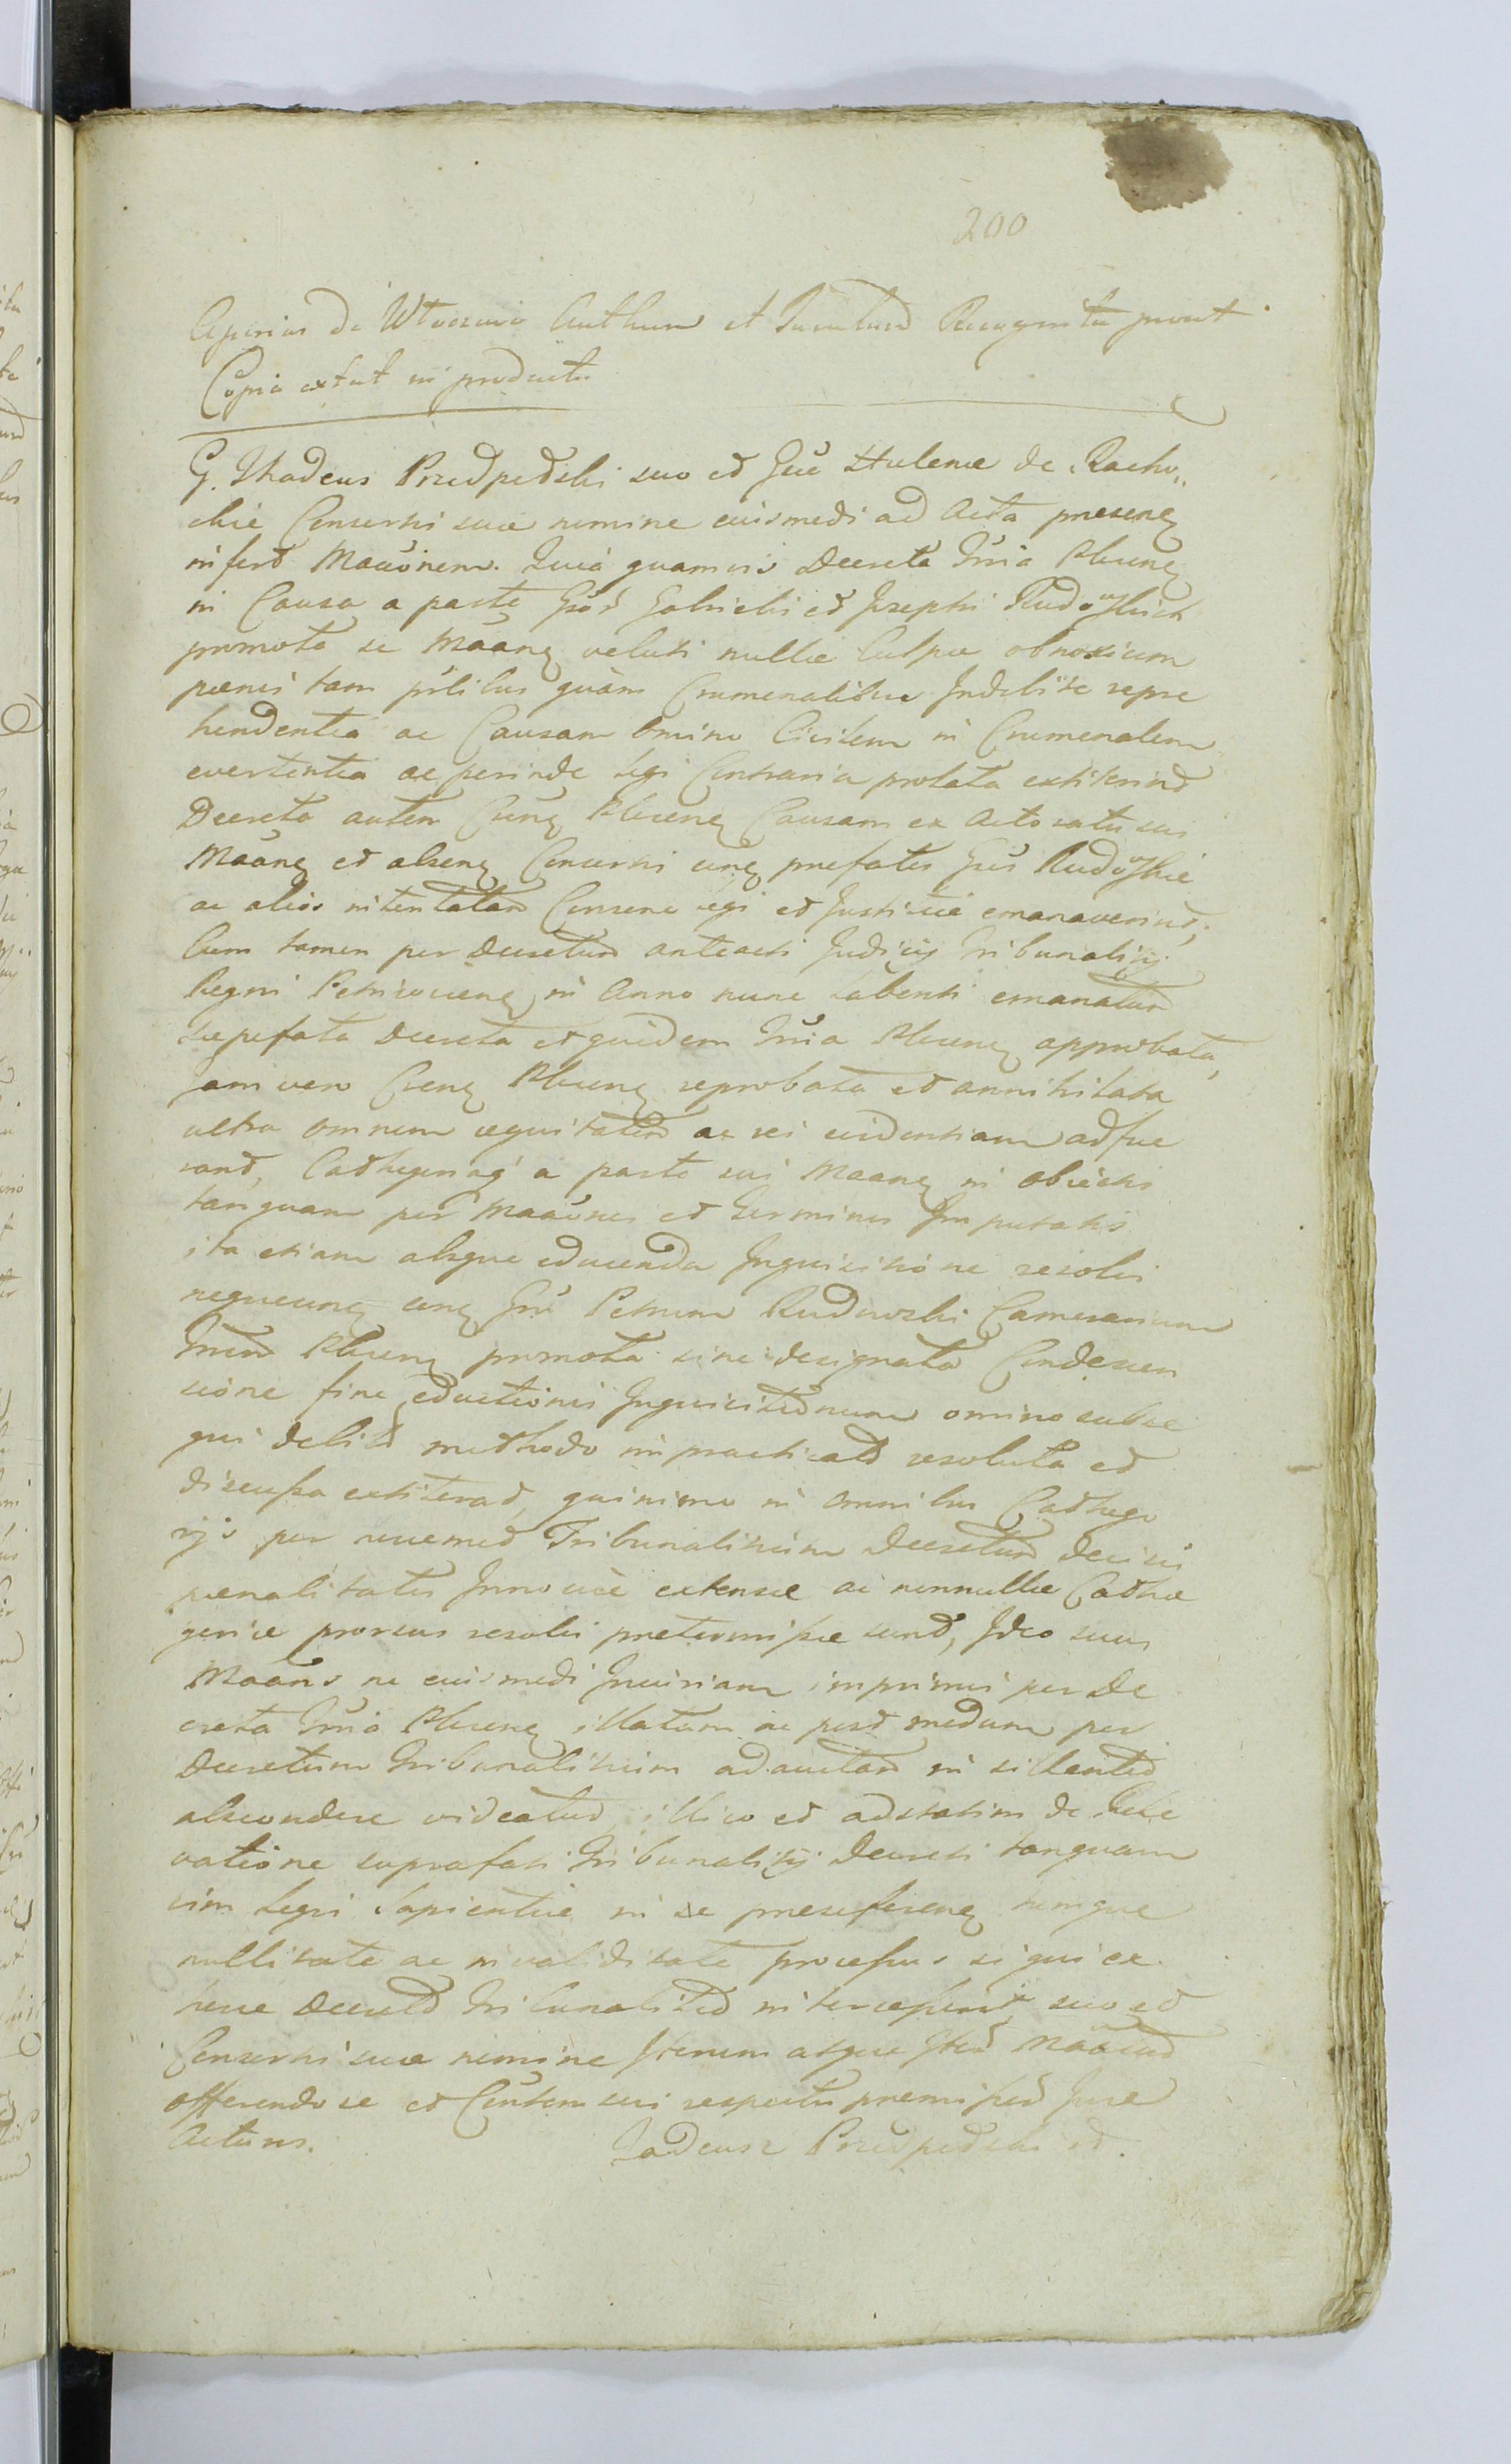 200
Copia extat in productu
G. Thadeus Przedpedski suo et Gsae Helenae de Racho„
ckie Consortis suae nomine eiusmodi ad Acta presenq
infert Maãonem. Quia quamvis Decreta Tria Plocenq
in Causa a parte Gsos Gabrielis et Josephi Rudowskich
promota se Maanq veluti nulliae Culpae obnoxium
paenis tam pilibus quàm Crumenalibus Indebite repre
hendentia ac Causam omino Civilem in Crumenalem
evertentia ac perinde legi Contraria prolata extiterint
Decreta autem Crenq Plocenq Causam ex Actoratu sui
Maanq et alsenq Consortis erq prefatos Gsos Rudowskie
ac alios intentatam Consone legi et Justitiae emanaverint,
Cum tamen per Decretum anteacti Judicij Tribunalitij
Regni Petricovienq in Anno nunc labenti emanatum
saepefata Decreta et quidem Tria Plocenq approbata,
jam vero Crenq Plocenq reprobata et annihilata
ultra omnem aequitatem ac rei evidentiam adfue
rant, Cathegoriaq a parte sui Maanq in obiectis
tanquam per Maãones et Terminos Imputatis
ita etiam absque educenda Inquisitione resolvi
nequeunq erq Gsu Petrum Rudowski Camerarium
Trem Plocenq promota sine designata Condescen
sione fine eductionis Inquisitionum omino subse
qui debita methodo impracticata resoluta et
discussa extiterat, quinimo in omnibus Cathego
rijs per reuemet Tribunalitium Decretum decisis
paenalitates Innocuè extensae ac nonnullae Cathe
goriae prorsus resolvi pretermissae sunt, Ideo suus
Maans ne eiusmodi Iniuriam imprimis per De
creta Tria Plocenq illatam ac post modum per
Decretum Tribunalitium adauctam in silentio
abscondere videatur, illico et adstatim de Rele
vatione suprafati Tribunalitij Decreti tanquam
vim legis sapientiae in se preseferenq nemque
nullitate ac invaliditate processus si qui ex
hocce Decreto Tribunalitio intercesserit, suo et
Consortis suae nomine Iterum atque Iter Maãtur
offerendo se et Contem sui respectu premissor Jure
Acturos. Tadeusz Przedpedski